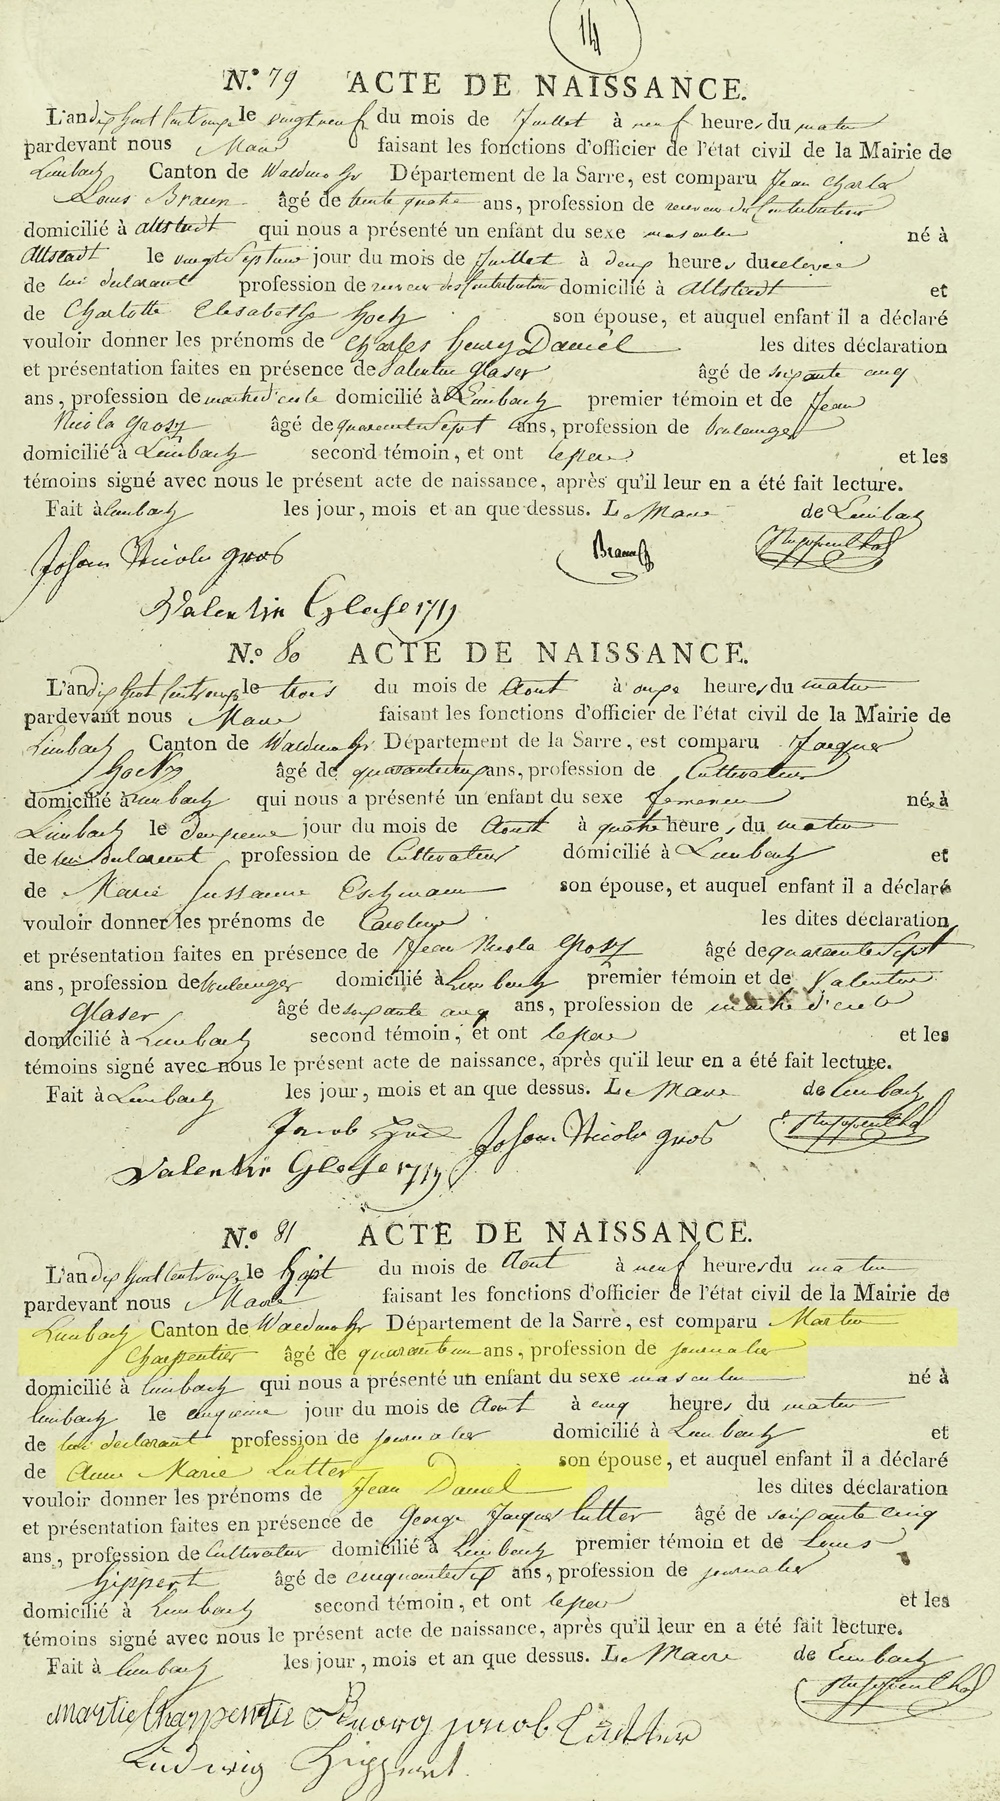 14
N.º 79 ACTE DE NAISSANCE.
L'an dix huit cent onze le vingt neuf du mois de Juillet à neuf heures du matin
pardevant nous Maire faisant les fonctions d'officier de l'état civil de la Mairie de
Limbach Canton de Waldmohr Département de la Sarre, est comparu Jean Charles
Louis Braun âgé de trente quatre ans, profession de receveur des Contributions
domicilié à Altstadt qui nous a présenté un enfant du sexe masculin né à
Altstadt le vingt Septieme jour du mois de Juillet à deux heures du relevée
de lui declarant profession de receveur des Contributions domicilié à Altstadt et
de Charlotte Elisabeth Hoch son épouse, et auquel enfant il a déclaré
vouloir donner les prénoms de Charles Henry Daniel les dites déclaration
et présentation faites en présence de Valentin Glaser âgé de soixante cinq
ans, profession de domicilié à Limbach premier témoin et de Jean
Nicola Grosz âgé de quarante Sept ans, profession de boulanger
domicilié à Limbach second témoin, et ont le pere et les
témoins signé avec nous le présent acte de naissance, après qu'il leur en a été fait lecture.
Fait à Limbach les jour, mois et an que dessus. Le Maire de Limbach
Johan Nicola gros Braun Ruppenthal
Valentin Glaser 1719
N.º 80 ACTE DE NAISSANCE.
L'an dix huit cent onze le trois du mois de Aout à onze heures du matin
pardevant nous Maire faisant les fonctions d'officier de l'état civil de la Mairie de
Limbach Canton de Waldmohr Département de la Sarre, est comparu Jacques
Hock âgé de ans, profession de Cultivateur
domicilié à Limbach qui nous a présenté un enfant du sexe femenin née à
Limbach le deuxieme jour du mois de Aout à quatre heures du matin
de lui declarant profession de Cultivateur domicilié à Limbach et
de Marie Sussanne Eschmann son épouse, et auquel enfant il a déclaré
vouloir donner les prénoms de Caroline les dites déclaration
et présentation faites en présence de Jean Nicola Grosz âgé de quarante Sept
ans, profession de boulanger domicilié à Limbach premier témoin et de Valentin
Glaser âgé de soixante cinq ans, profession de
domicilié à Limbach second témoin, et ont le pere et les
témoins signé avec nous le présent acte de naissance, après qu'il leur en a été fait lecture.
Fait à Limbach les jour, mois et an que dessus. Le Maire de Limbach
Jacob Johan Nicola gros Ruppenthal
Valentin Glaser 1719
N.º 81 ACTE DE NAISSANCE.
L'an dix huit cent onze le Sept du mois de Aout à neuf heures du matin
pardevant nous Maire faisant les fonctions d'officier de l'état civil de la Mairie de
Limbach Canton de Waldmohr Département de la Sarre, est comparu Martin
Charpentier âgé de quarante un ans, profession de journalier
domicilié à Limbach qui nous a présenté un enfant du sexe masculin né à
Limbach le cinqieme jour du mois de Aout à cinq heures du matin
de lui declarant profession de journalier domicilié à Limbach et
de Anne Marie Lutter son épouse, et auquel enfant il a déclaré
vouloir donner les prénoms de Jean Daniel les dites déclaration
et présentation faites en présence de George Jacques Lutter âgé de soixante cinq
ans, profession de Cultivateur domicilié à Limbach premier témoin et de Louis
Hippert âgé de cinquante six ans, profession de journalier
domicilié à Limbach second témoin, et ont le pere et les
témoins signé avec nous le présent acte de naissance, après qu'il leur en a été fait lecture.
Fait à Limbach les jour, mois et an que dessus. Le Maire de Limbach
Martie Charpentier Georg jacob Lutter Ruppenthal
Ludwig Hippert